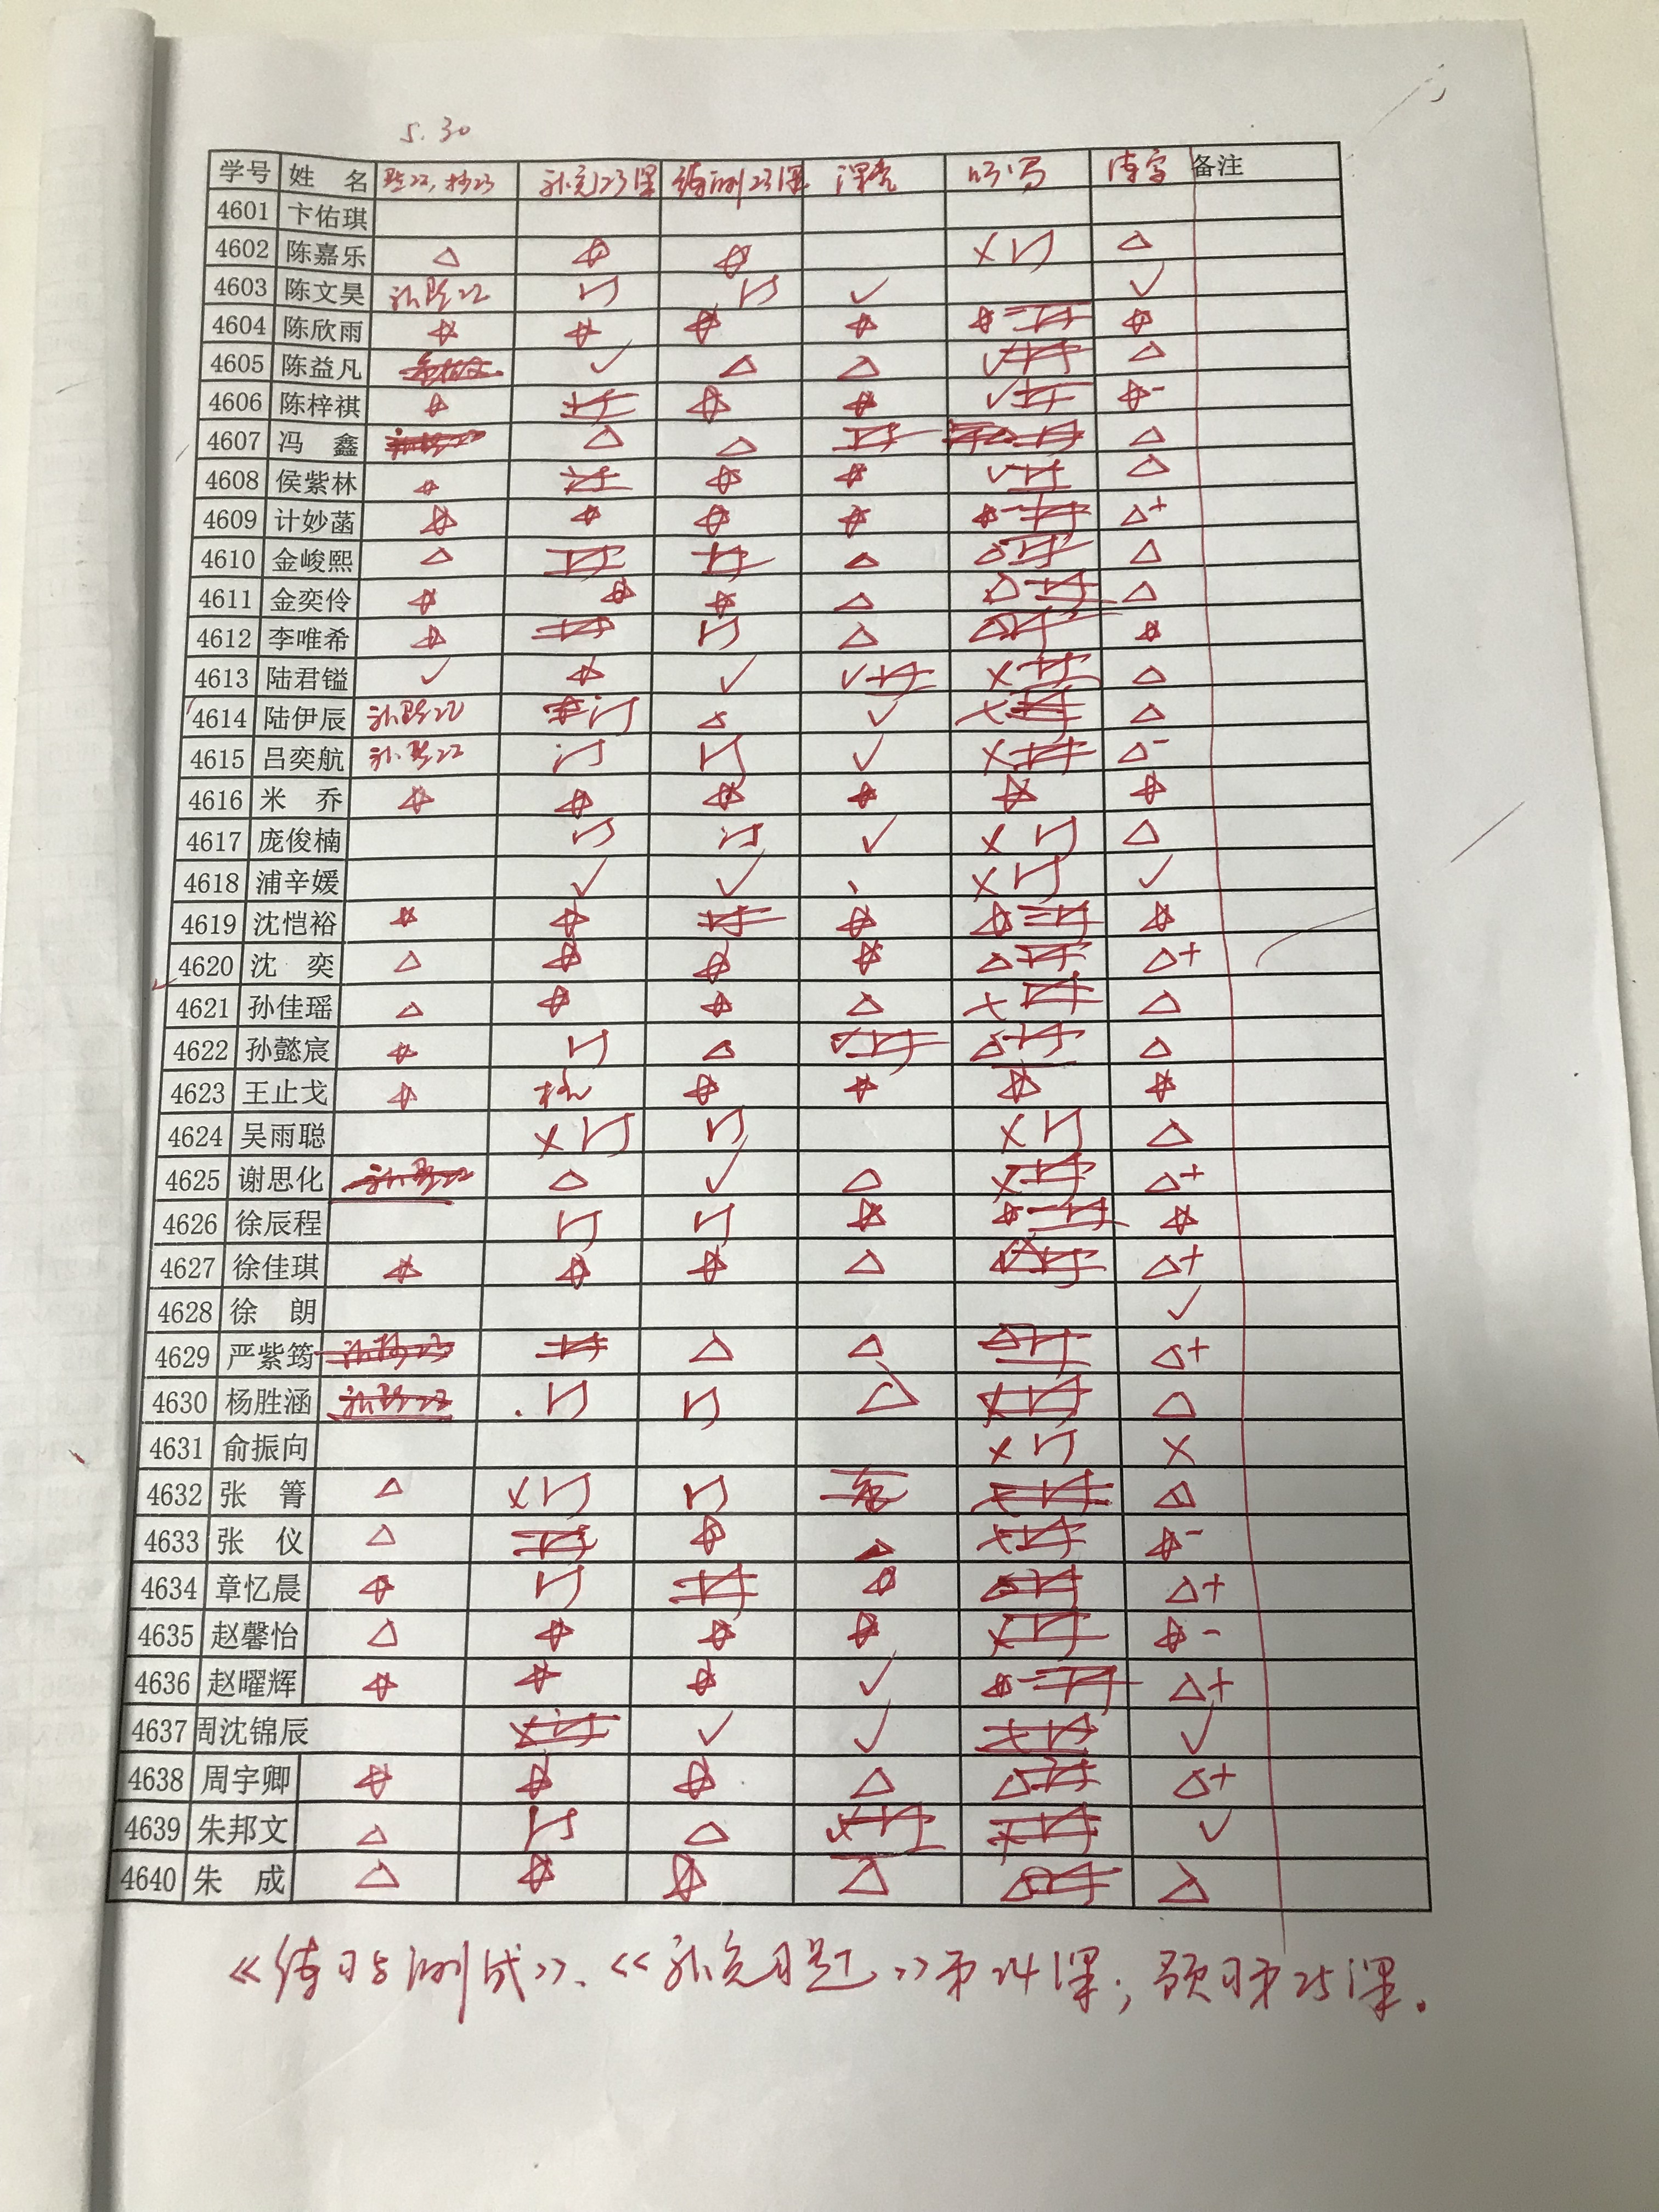 5.30
学号 姓 名 默22,抄23 补充23课 练测23课 课堂 听写 读写 备注
4601 卞佑琪
4602 陈嘉乐 △ ☆ ☆ × 订 △
4603 陈文昊 补默22 订 订 ✓ ✓
4604 陈欣雨 ☆ ☆ ☆ ☆ ☆- 订 ☆
4605 陈益凡 ✓ △ △ ✓ 订 △
4606 陈梓祺 ☆ 订 ☆ ☆ ✓ 订 ☆-
4607 冯 鑫 补默22 △ △ 订 订 △
4608 侯紫林 ☆ 订 ☆ ☆ ✓ 订 △
4609 计妙菡 ☆ ☆ ☆ ☆ ☆- 订 △+
4610 金峻熙 △ 订 订 △ △ 订 △
4611 金奕伶 ☆ ☆ ☆ △ △ 订 △
4612 李唯希 ☆ 订 订 △ △ 订 ☆
4613 陆君镒 ✓ ☆ ✓ ✓ 订 × 订 △
4614 陆伊辰 补默22 订 △ ✓ × 订 △
4615 吕奕航 补默22 订 订 ✓ × 订 △-
4616 米 乔 ☆ ☆ ☆ ☆ ☆ ☆
4617 庞俊楠 订 订 ✓ × 订 △
4618 浦辛媛 ✓ ✓ 、 × 订 ✓
4619 沈恺裕 ☆ ☆ 订 ☆ ☆- 订 ☆
4620 沈 奕 △ ☆ ☆ ☆ △ 订 △+
4621 孙佳瑶 △ ☆ ☆ △ × 订 △
4622 孙懿宸 ☆ 订 △ ✓ 订 △ 订 △
4623 王止戈 ☆ ☆ ☆ ☆ ☆
4624 吴雨聪 × 订 订 × 订 △
4625 谢思化 补默22 △ ✓ △ × 订 △+
4626 徐辰程 订 订 ☆ ☆- 订 ☆
4627 徐佳琪 ☆ ☆ ☆ △ 订 △+
4628 徐 朗 ✓
4629 严紫筠 补抄23 订 △ △ △ 订 △+
4630 杨胜涵 补默22 订 订 △ × 订 △
4631 俞振向 × 订 ×
4632 张 箐 △ × 订 订 × 订 △
4633 张 仪 △ 订 ☆ △ × 订 ☆-
4634 章忆晨 ☆ 订 订 ☆ △ 订 △+
4635 赵馨怡 △ ☆ ☆ ☆ × 订 ☆-
4636 赵曜辉 ☆ ☆ ☆ ✓ ☆- 订 △+
4637 周沈锦辰 × 订 ✓ ✓ × 订 ✓
4638 周宇卿 ☆ ☆ ☆ △ △ 订 △+
4639 朱邦文 △ 订 △ × 订 × 订 ✓
4640 朱 成 △ ☆ ☆ △ △ 订 △
《练习与测试》、《补充习题》第24课;预习第25课.